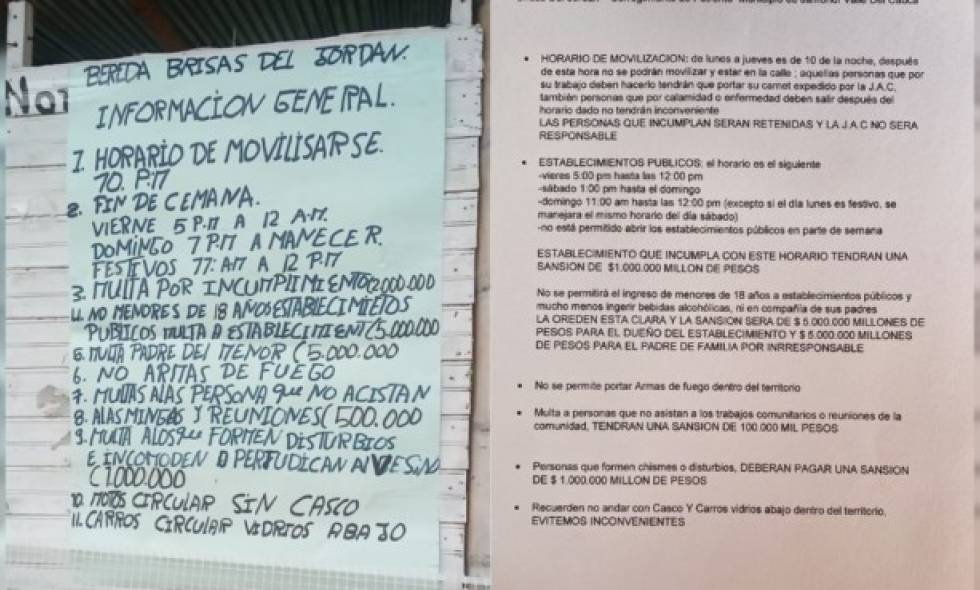 Nor
BEREDA BRISAS DEL JORDAN.
INFORMACION GENERAL.
1. HORARIO DE MOVILISARSE.
10. P.M
2. FIN DE CEMANA.
VIERNE 5 P.M A 12 A.M.
DOMINGO 7 P.M A MANECER.
FESTIVOS 11: AM A 12 P.M
3. MULTA POR INCUMPLIMIENTO(2000.000
4. NO MENORES DE 18 AÑOS ESTABLECIMIETOS
PUBLICOS MULTA A ESTABLECIMIENT(5.000.000
5. MULTA PADRE DEL MENOR (5.000.000
6. NO ARMAS DE FUEGO
7. MULTAS ALAS PERSONA QUE NO ACISTAN
8. ALAS MINGAS Y REUNIONES(500.000
9. MULTA ALOS QUE FORMEN DISTURBIOS
E INCOMODEN O PERJUDICAN AL VESINO
(1.000.000
10. MOTOS CIRCULAR SIN CASCO
11. CARROS CIRCULAR VIDRIOS ABAJO
• HORARIO DE MOVILIZACION: de lunes a jueves es de 10 de la noche, después
de esta hora no se podrán movilizar y estar en la calle ; aquellas personas que por
su trabajo deben hacerlo tendrán que portar su carnet expedido por la J.A.C,
también personas que por calamidad o enfermedad deben salir después del
horario dado no tendrán inconveniente
LAS PERSONAS QUE INCUMPLAN SERAN RETENIDAS Y LA J.A.C NO SERA
RESPONSABLE
• ESTABLECIMIENTOS PUBLICOS: el horario es el siguiente
-vieres 5:00 pm hasta las 12:00 pm
-sábado 1:00 pm hasta el domingo
-domingo 11:00 am hasta las 12:00 pm (excepto si el día lunes es festivo, se
manejara el mismo horario del día sábado)
-no está permitido abrir los establecimientos públicos en parte de semana
ESTABLECIMIENTO QUE INCUMPLA CON ESTE HORARIO TENDRAN UNA
SANSION DE $1.000.000 MILLON DE PESOS
No se permitirá el ingreso de menores de 18 años a establecimientos públicos y
mucho menos ingerir bebidas alcohólicas, ni en compañía de sus padres
LA OREDEN ESTA CLARA Y LA SANSION SERA DE $ 5.000.000 MILLONES DE
PESOS PARA EL DUEÑO DEL ESTABLECIMIENTO Y $ 5.000.000 MILLONES
DE PESOS PARA EL PADRE DE FAMILIA POR INRRESPONSABLE
• No se permite portar Armas de fuego dentro del territorio
• Multa a personas que no asistan a los trabajos comunitarios o reuniones de la
comunidad, TENDRAN UNA SANSION DE 100.000 MIL PESOS
• Personas que formen chismes o disturbios, DEBERAN PAGAR UNA SANSION
DE $ 1.000.000 MILLON DE PESOS
• Recuerden no andar con Casco Y Carros vidrios abajo dentro del territorio,
EVITEMOS INCONVENIENTES